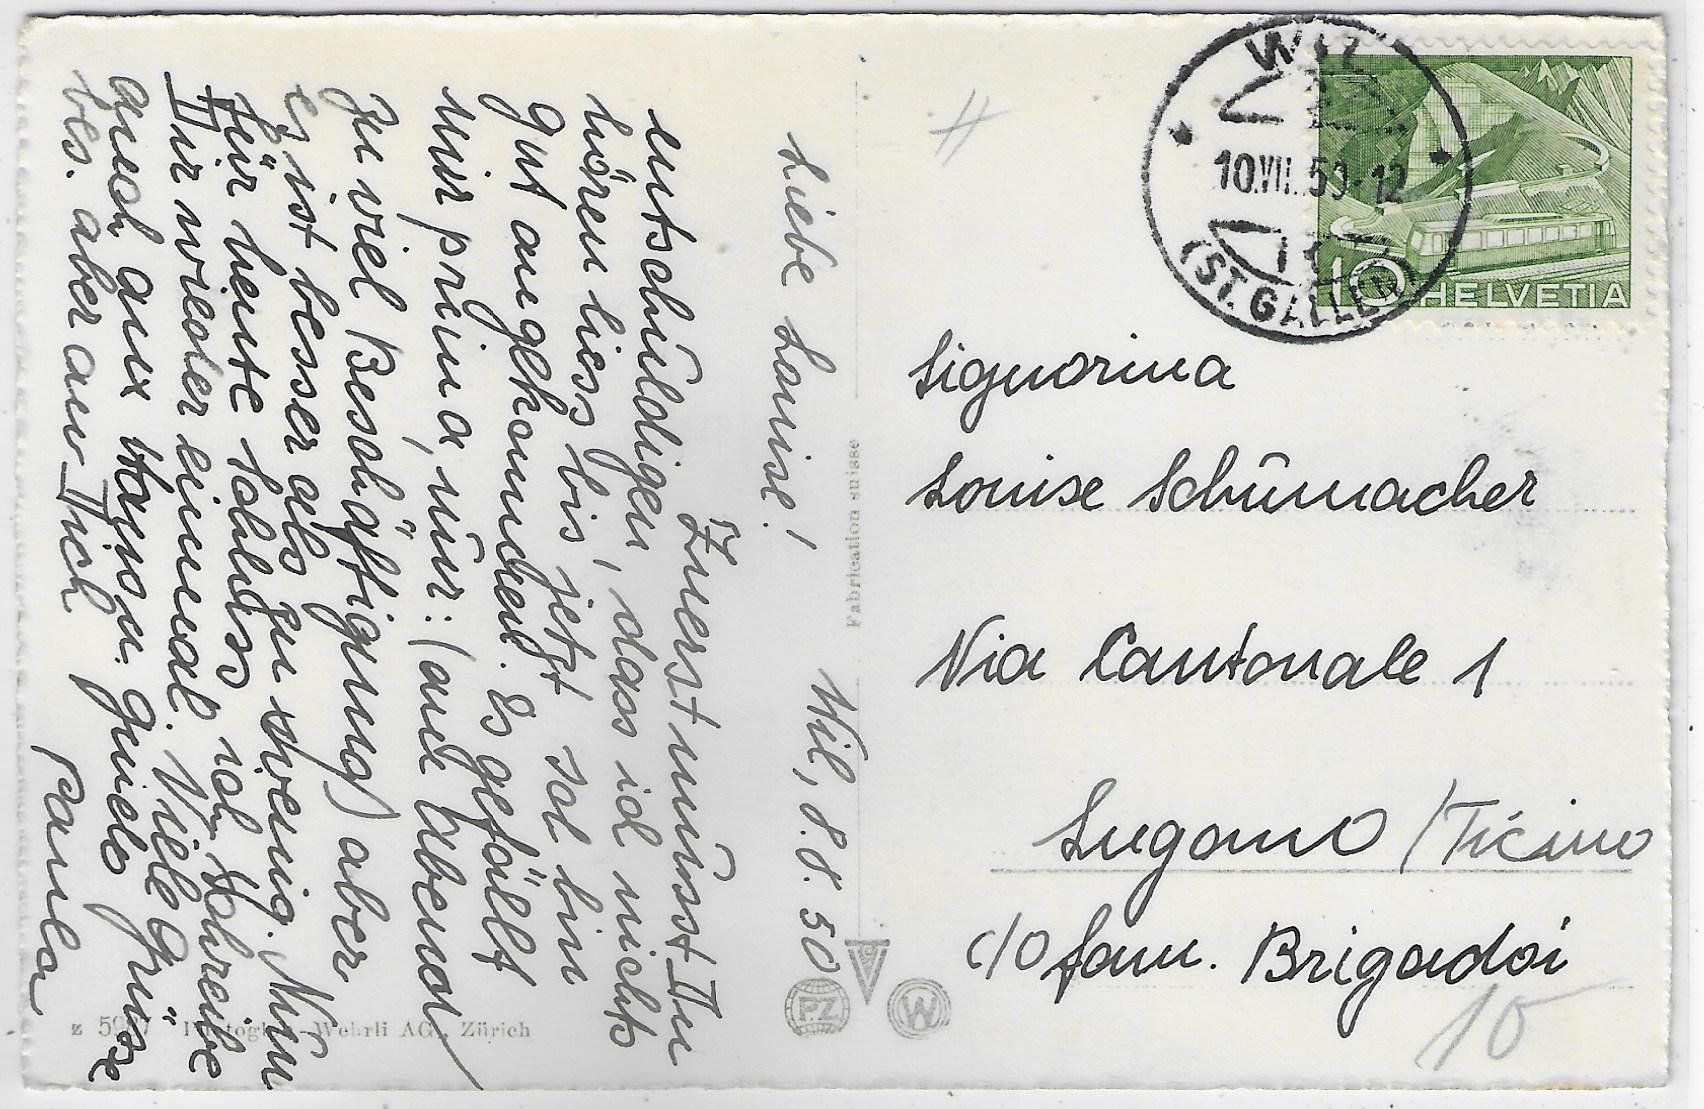 Wil, 8.8.50
Liebe Louise!
Zuerst musst Du
entschuldigen, dass ich nichts
hören liess bis jetzt sol bin
gut angekommen. Es gefällt
mir prima, nur: (am Abend
zu viel Beschäftigung) aber
es ist besser als zu wenig. Nun
für heute Schluss ich schreibe
Dir wieder einmal. Viele Grüsse
auch aux Hausu. Guido
bes. aber an Dich
Paula
Fabrication suisse
z 5987 Photoglob-Wehrli AG., Zürich
PZ
W
WIL
10.VII.50-12
(ST. GALLEN)
10 HELVETIA
Signorina
Louise Schumacher
Via Cantonale 1
Lugano / Ticino
c/o Fam. Brigadoi
10